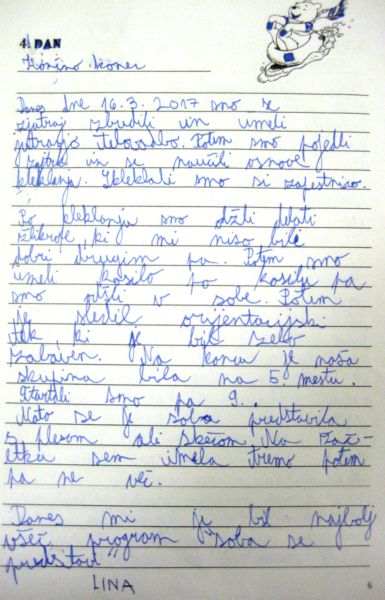 4. DAN
Končno konec
Danes dne 16.3. 2017 smo se
zjutraj zbudili in imeli
jutranjo telovadbo. Potem smo pojedli
zajtrk in se naučili osnove
klekljanja. Skleklali smo si zapestnico.
Po kleklanju smo odšli delati
žlikrofe, ki mi niso bili
dobri, drugim pa. Potem smo
imeli kosilo po kosilu pa
smo odšli v sobe. Potem
je sledil orijentacijski
tek ki je bil zelo
zabaven. Na koncu je naša
skupina bila na 5. mestu.
Štartali smo pa 9..
Nato se je soba predstavila
s plesom ali skečom. Na zač-
etku sem imela tremo potem
pa ne več.
Danes mi je bil najbolj
všeč program "soba se
predstavi"
LINA
6